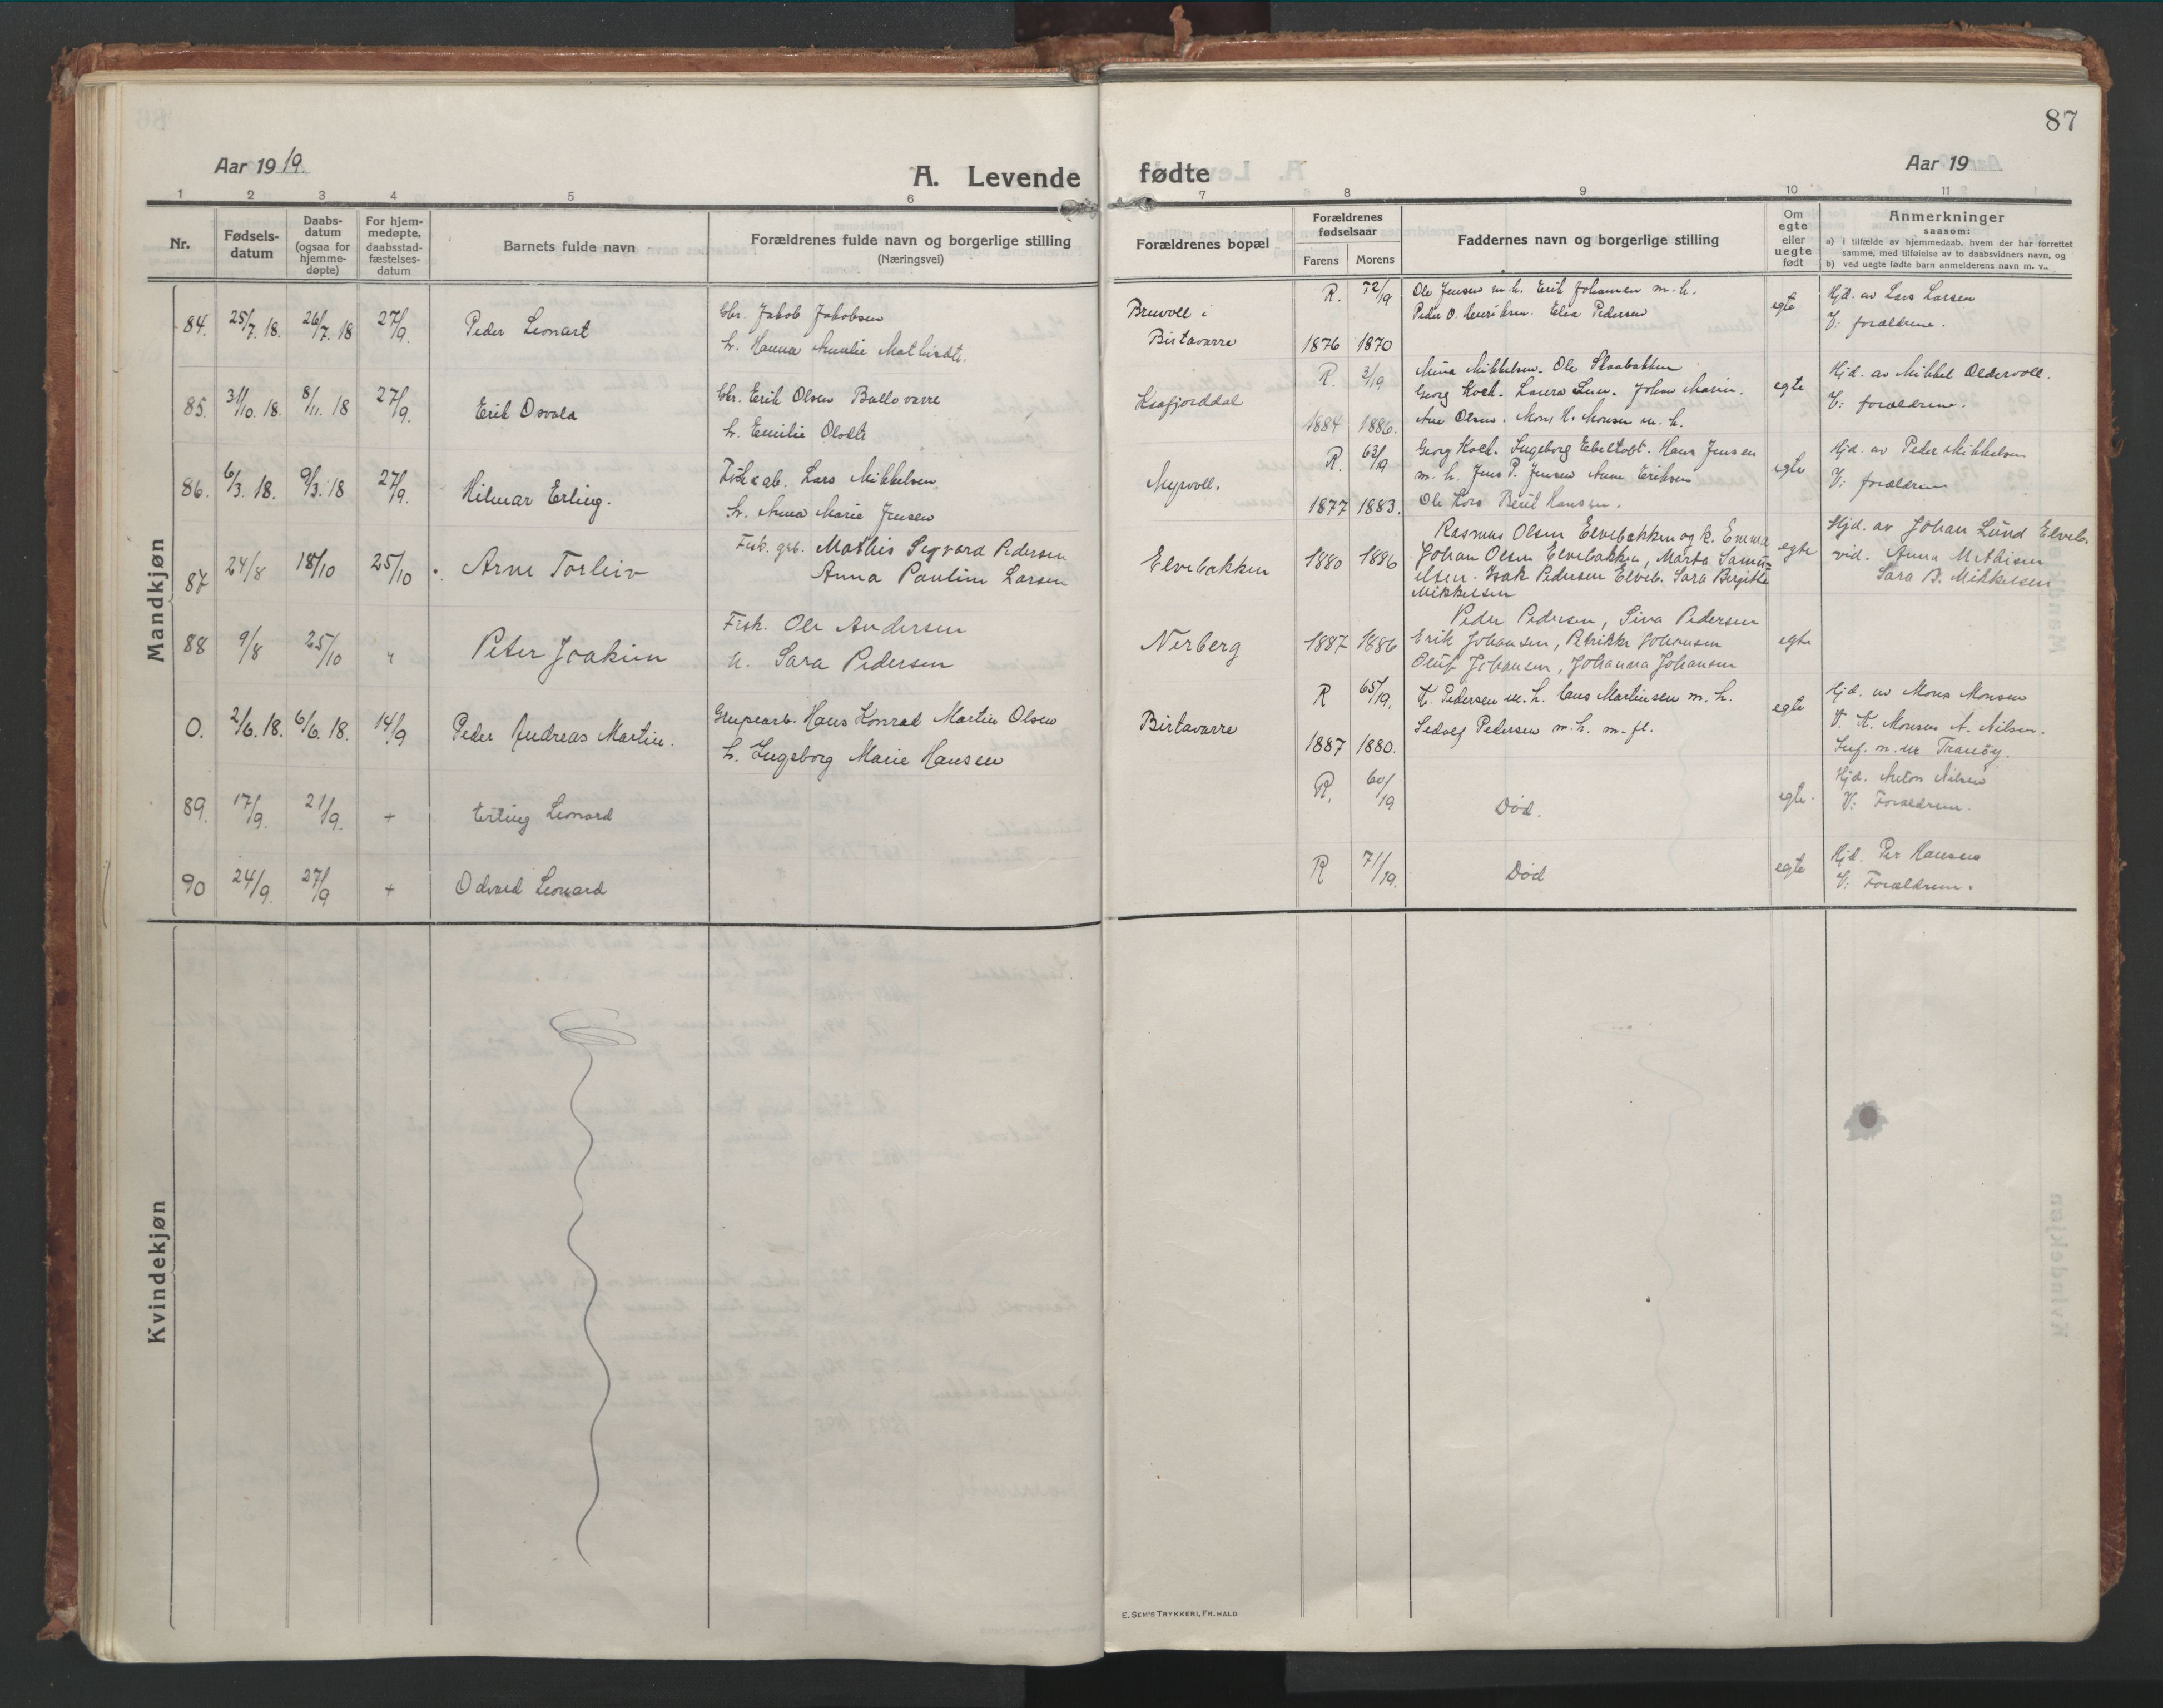 87
Aar 1919.
A. Levende fødte
Aar 19
1 2 3 4 5 6 7 8 9 10 11
Nr.
Fødsels-
datum
Daabs-
datum
(ogsaa for
hjemme-
døpte)
For hjem-
medøpte,
daabsstad-
fæstelses-
datum
Barnets fulde navn
Forældrenes fulde navn og borgerlige stilling
(Næringsvei)
Forældrenes bopæl
Forældrenes
fødselsaar
Farens Morens
Faddernes navn og borgerlige stilling
Om
egte
eller
uegte
født
Anmerkninger
saasom:
a) i tilfælde av hjemmedaab, hvem der har forrettet
samme, med tilføielse av to daabsvidners navn, og
b) ved uegte fødte barn anmelderens navn m. v..
Mandkjøn
84. 25/7. 18. 26/7. 18 27/9. Peder Leonart
Gbr. Jakob Jakobsen
h. Hanna Amalie Mathisdt.
Birtavarre
R. 72/19
1876 1870
Ole Jensen m. h. Erik Johansen m. h.
Peder O. Henriksen. Elen Pedersen
egte
Hjd. av Lars Larsen
V: forældrene.
85. 31/10. 18. 8/11. 18 27/9. Erik Osvald
Gbr. Erik Olsen Ballovarre
h. Emilie Olsdt.
Kaafjorddal
R. 3/19
1884 1886.
Mina Mikkelsen. Ole Skaabakken
Georg Koch. Laura Johan
Ane Olsen. Mons H. Monsen m. h.
egte
Hjd. av Mikkel Oldervoll.
V: forældrene.
86. 6/3. 18. 9/3. 18 27/9. Hilmar Erling.
Lars Mikkelsen
h. Anna Marie Jensen
Myrvoll.
R. 63/19
1877 1883.
Georg Koch. Ingeborg Ebeltoft. Hans Jensen
m. h. Jens P. Jensen Anne Eriksen
Ole Berit Hansen.
egte
Hjd. av Peder Mikkelsen
V: forældrene
87 24/8 18/10 25/10 Arne Torleiv
Fisk. grb. Mathis Sigvard Pedersen
Anna Pauline Larsen
Elvebakken
1880 1886
Rasmus Olsen Elvebakken og k. Emma
Johan Olsen Elvebakken, Marta Samu=
elsen. Isak Pedersen Elveb. Sara Birgitte
Mikkelsen
egte
Hjd. av Johan Lund Elveb.
vid. Anna Mathisen
Sara B. Mikkelsen
88 9/8 25/10 " Peter Joakim
Fisk. Ole Andersen
h. Sara Pedersen
Nerberg
1887 1886
Peder Pedersen, Sina Pedersen
Erik Johansen, Petrikke Johansen
Oluf Johansen, Johanna Johansen
egte
0. 2/6. 18. 6/6. 18. 14/9 Peder Andreas Martin.
Grupearb. Hans Konrad Martin Olsen
h. Ingeborg Marie Hansen
Birtavarre
R 65/19.
1887 1880.
K. Pedersen m. h. Martinsen m. h.
Pedersen m. h. m. fl.
egte
Hjd. av Mons Monsen
V. K. Monsen A. Nilsen.
Tranøy.
89. 17/9. 21/9. + Erling Leonard
R. 60/19
Død.
egte.
Hjd. Anton Nilsen
V: Forældrene.
90 24/9. 27/9 + Odvard Leonard
R 71/19.
Død
egte
Hjd. Per Hansen
V: Forældrene.
Kvindekjøn
E. SEM'S TRYKKERI, FR. HALD